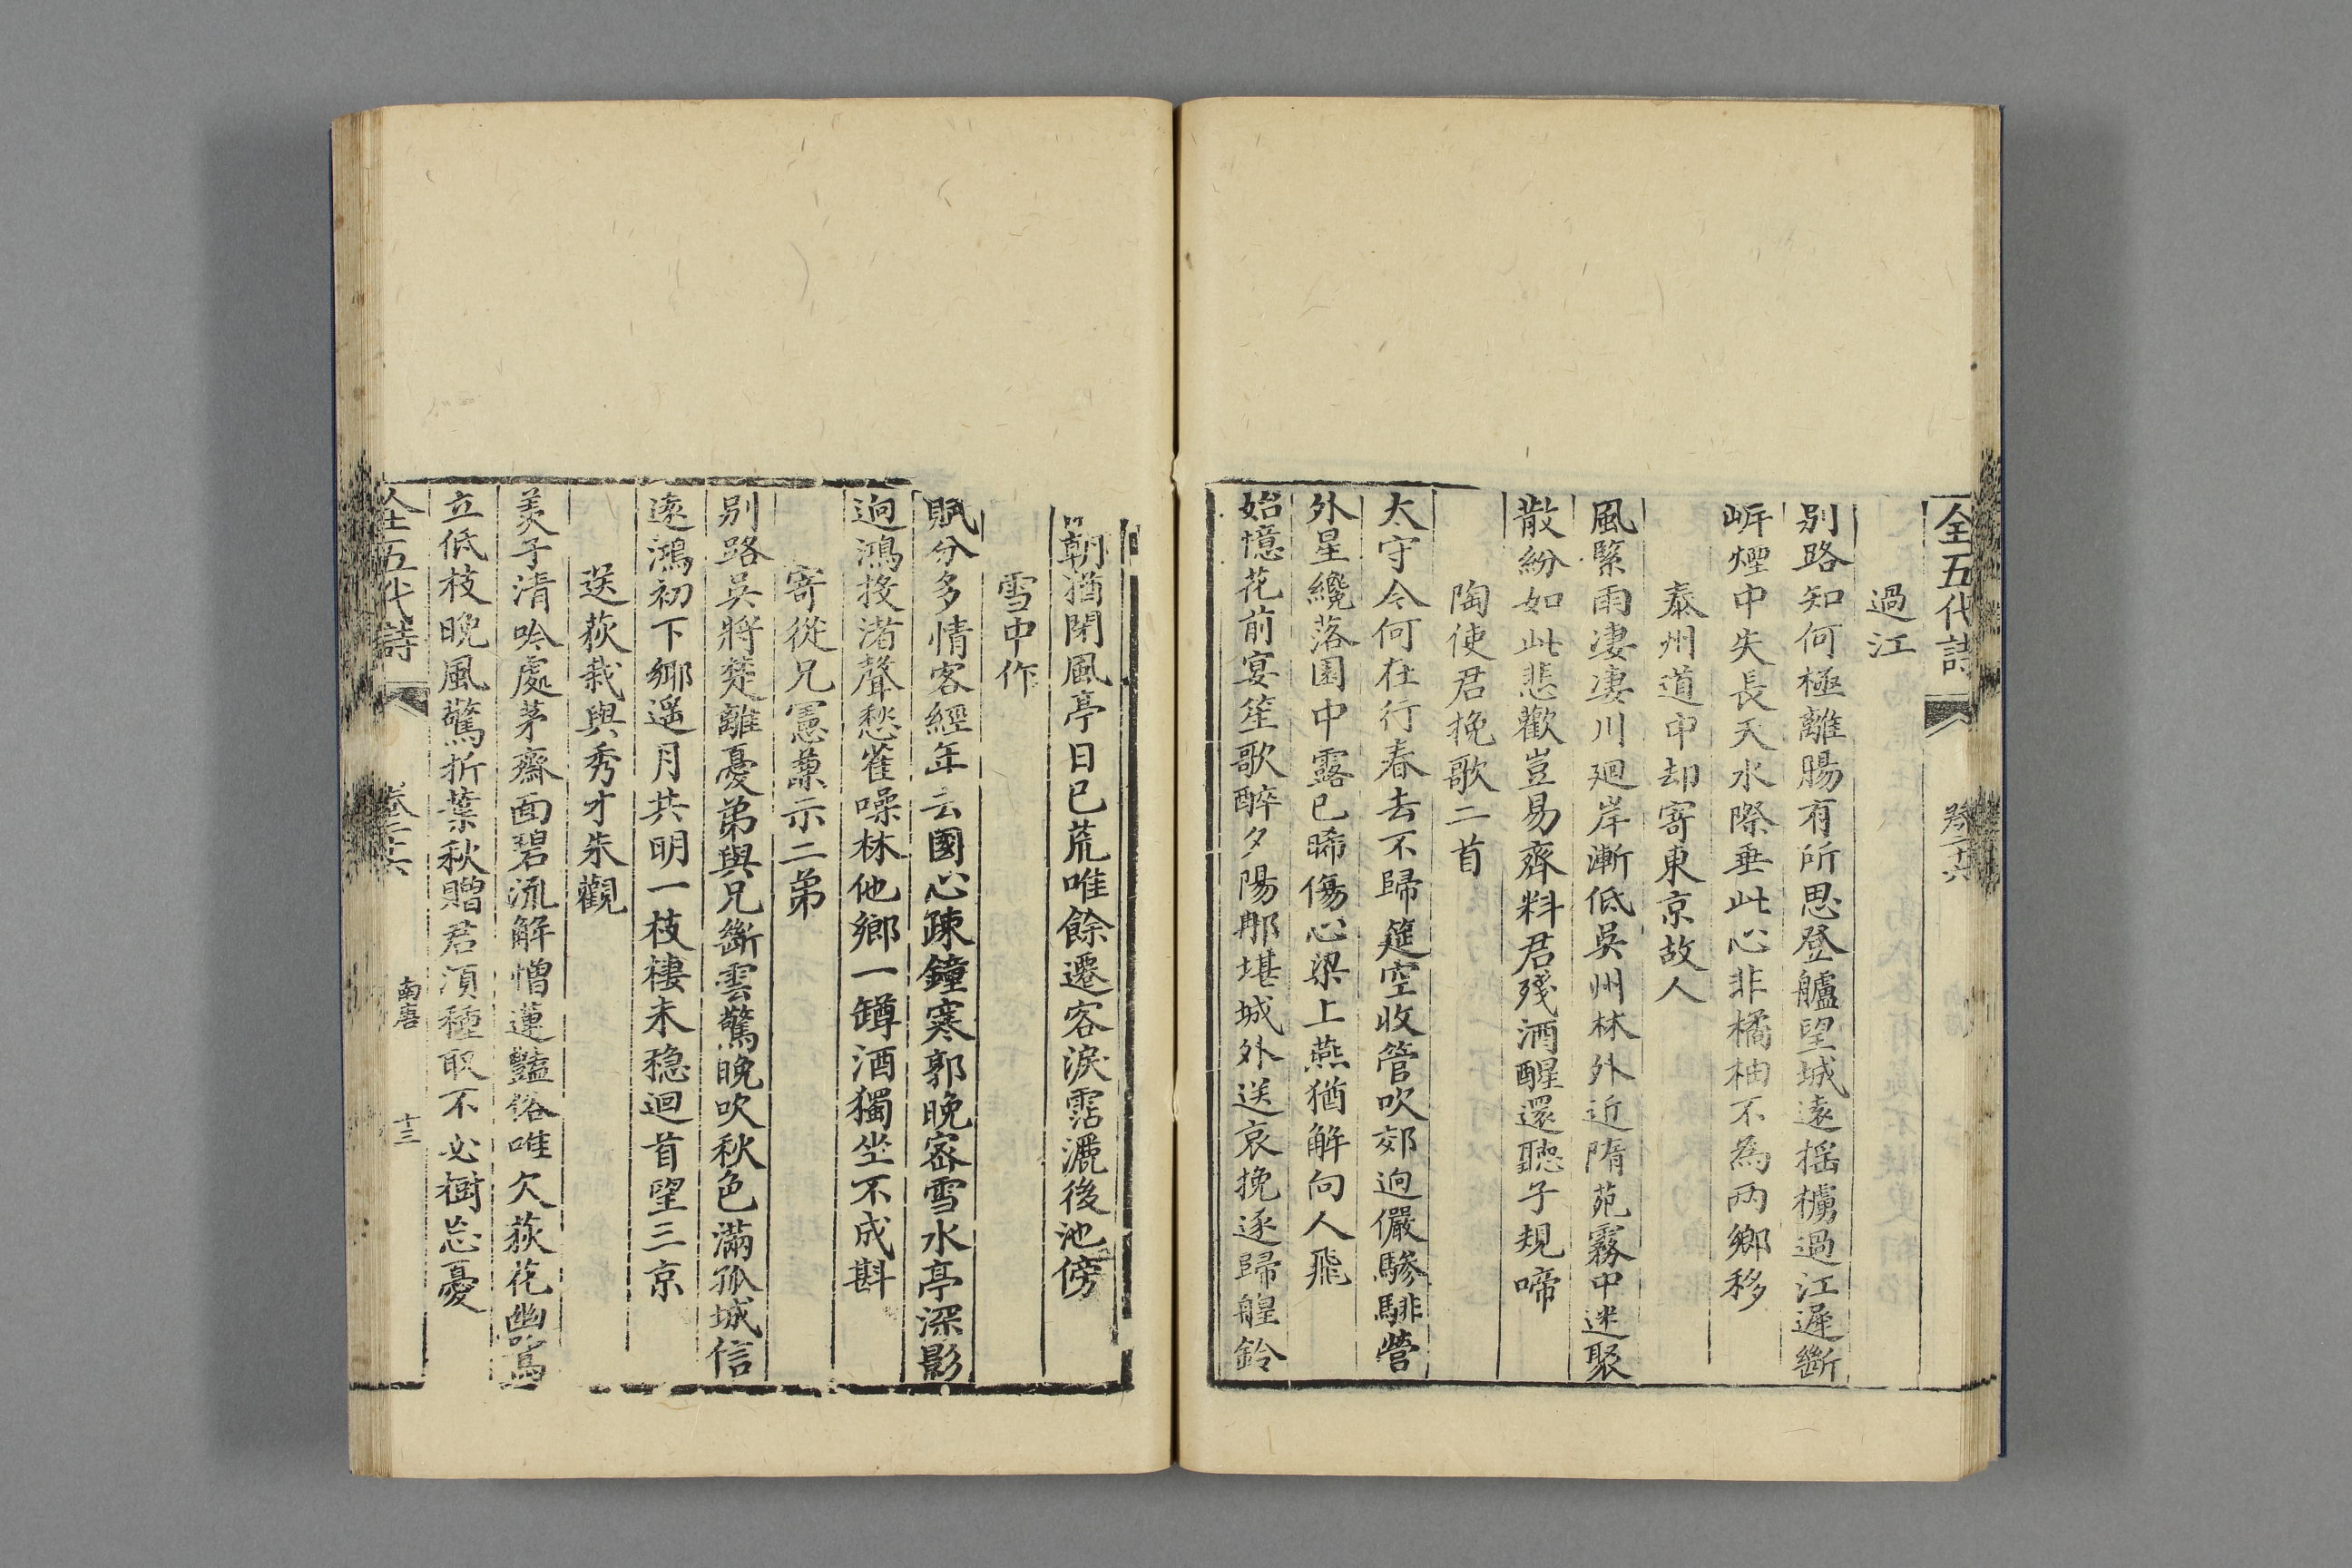 全五代詩 卷二十六
過江
别路知何極離腸有所思登艫望城遠搖櫓過江遲斷
岍煙中失長天水際垂此心非橘柚不為兩鄉移
泰州道中却寄東京故人
風緊雨淒淒川廻岸漸低吳州林外近隋苑霧中迷聚
散紛如此悲歡豈易齊料君殘酒醒還聽子規啼
陶使君挽歌二首
太守今何在行春去不歸筵空收管吹郊逈儼驂騑營
外星纔落園中露已晞傷心梁上燕猶解向人飛
始憶花前宴笙歌醉夕陽那堪城外送哀挽逐歸艎鈴
閣朝猶閉風亭日已荒唯餘遷客淚霑灑後池傍
雪中作
賦分多情客經年去國心疎鐘寒郭晚密雪水亭深影
逈鴻投渚聲愁雀噪林他鄉一罇酒獨坐不成斟
寄從兄憲兼示二弟
别路吳將楚離憂弟與兄斷雲驚晚吹秋色滿孤城信
遠鴻初下鄉遥月共明一枝棲未穏迴首望三京
送荻栽與秀才朱觀
羨子清吟處茅齋面碧流解憎蓮豔俗唯欠荻花幽鷺
立低枝晚風驚折葉秋贈君須種取不必樹忘憂
全五代詩 卷二十六 南唐 十三